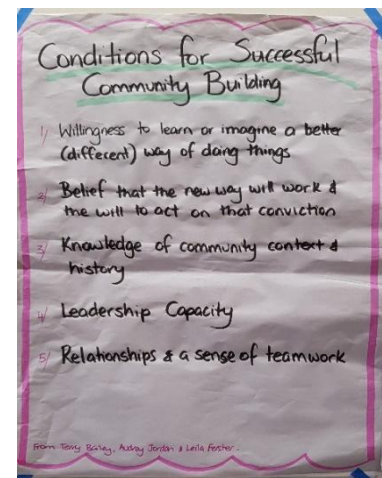 Conditions for Successful
Community Building
1/ Willingness to learn or imagine a better
(different) way of doing things
2/ Belief that the new way will work &
the will to act on that conviction
3/ Knowledge of community context &
history
4/ Leadership Capacity
5/ Relationships & a sense of teamwork
From Terry Bailey, Audrey Jordan & Leila